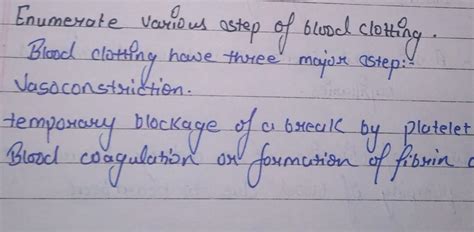 Enumerate various step of blood clotting.
Blood clotting have three major step:-
Vasoconstriction.
temporary blockage of a break by platelet
Blood coagulation or formation of fibrin